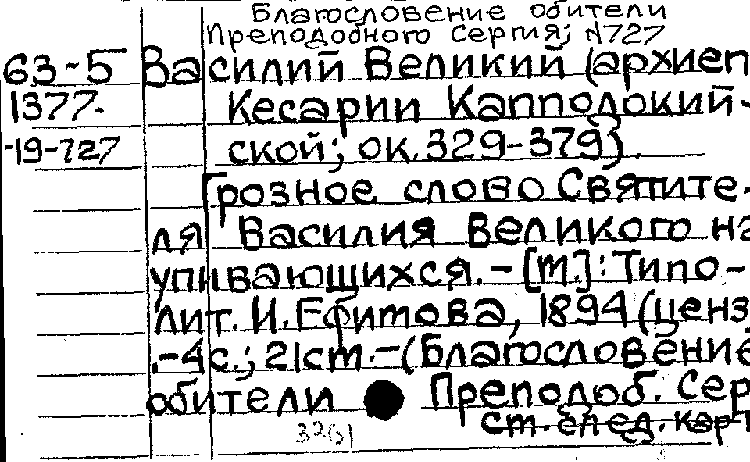 Благословение обители
Преподобного Сергия; N727
63-5 Василий Великий (архиеп
1377. Кесарии Капподокий-
-19-727 ской; ок. 329-379).
Грозное слово Святите-
ля Василия Великого на
упивающихся. - [М.]: Типо-
лит. И. Ефимова, 1894 (ценз
. - 4с.; 21см. - (Благословение
обители Преподоб. Сер
см. след. карт
32(3)